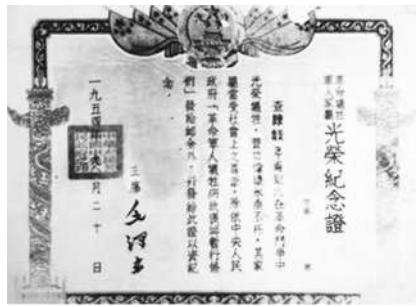 革命犧牲
軍人家屬
光榮紀念證
字第 號
查 同志 在革命鬥爭中
光榮犧牲，豐功偉績永垂不朽，其家
屬當受社會上之尊崇。除依中央人民
政府「革命軍人犧牲病故褒恤暫行條
例」發給卹金外，並發給此證以資紀
念。
主席 毛澤東
一九五四年 月二十日